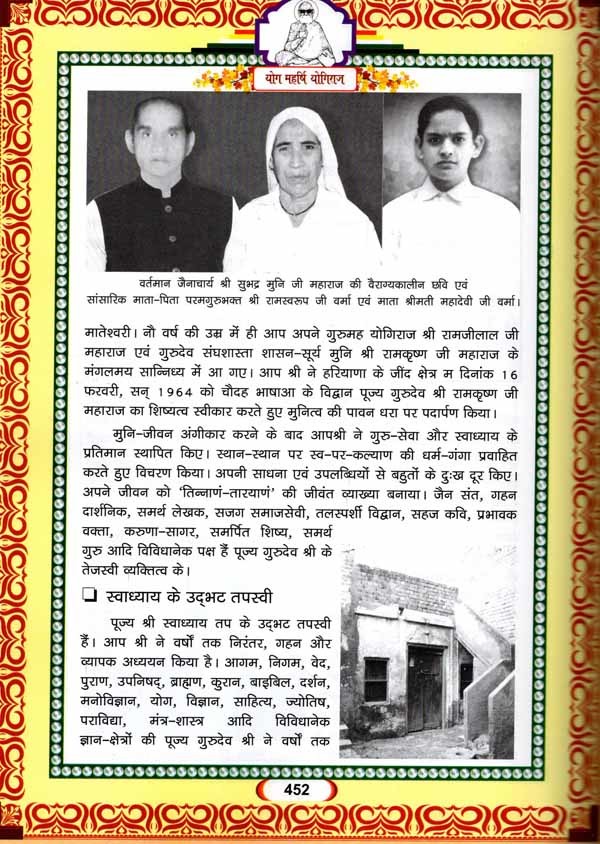 योग महर्षि योगिराज
वर्तमान जैनाचार्य श्री सुभद्र मुनि जी महाराज की वैराग्यकालीन छवि एवं
सांसारिक माता-पिता परमगुरुभक्त श्री रामस्वरूप जी वर्मा एवं माता श्रीमती महादेवी जी वर्मा।
मातेश्वरी। नौ वर्ष की उम्र में ही आप अपने गुरुमह योगिराज श्री रामजीलाल जी
महाराज एवं गुरुदेव संघशास्ता शासन-सूर्य मुनि श्री रामकृष्ण जी महाराज के
मंगलमय सान्निध्य में आ गए। आप श्री ने हरियाणा के जींद क्षेत्र म दिनांक 16
फरवरी, सन् 1964 को चौदह भाषाआ के विद्वान पूज्य गुरुदेव श्री रामकृष्ण जी
महाराज का शिष्यत्व स्वीकार करते हुए मुनित्व की पावन धरा पर पदार्पण किया।
मुनि-जीवन अंगीकार करने के बाद आपश्री ने गुरु-सेवा और स्वाध्याय के
प्रतिमान स्थापित किए। स्थान-स्थान पर स्व-पर-कल्याण की धर्म-गंगा प्रवाहित
करते हुए विचरण किया। अपनी साधना एवं उपलब्धियों से बहुतों के दुःख दूर किए।
अपने जीवन को 'तिन्नाणं-तारयाणं' की जीवंत व्याख्या बनाया। जैन संत, गहन
दार्शनिक, समर्थ लेखक, सजग समाजसेवी, तलस्पर्शी विद्वान, सहज कवि, प्रभावक
वक्ता, करुणा-सागर, समर्पित शिष्य, समर्थ
गुरु आदि विविधानेक पक्ष हैं पूज्य गुरुदेव श्री के
तेजस्वी व्यक्तित्व के।
❑ स्वाध्याय के उद्भट तपस्वी
पूज्य श्री स्वाध्याय तप के उद्भट तपस्वी
हैं। आप श्री ने वर्षों तक निरंतर, गहन और
व्यापक अध्ययन किया है। आगम, निगम, वेद,
पुराण, उपनिषद्, ब्राह्मण, कुरान, बाइबिल, दर्शन,
मनोविज्ञान, योग, विज्ञान, साहित्य, ज्योतिष,
पराविद्या, मंत्र-शास्त्र आदि विविधानेक
ज्ञान-क्षेत्रों की पूज्य गुरुदेव श्री ने वर्षों तक
452